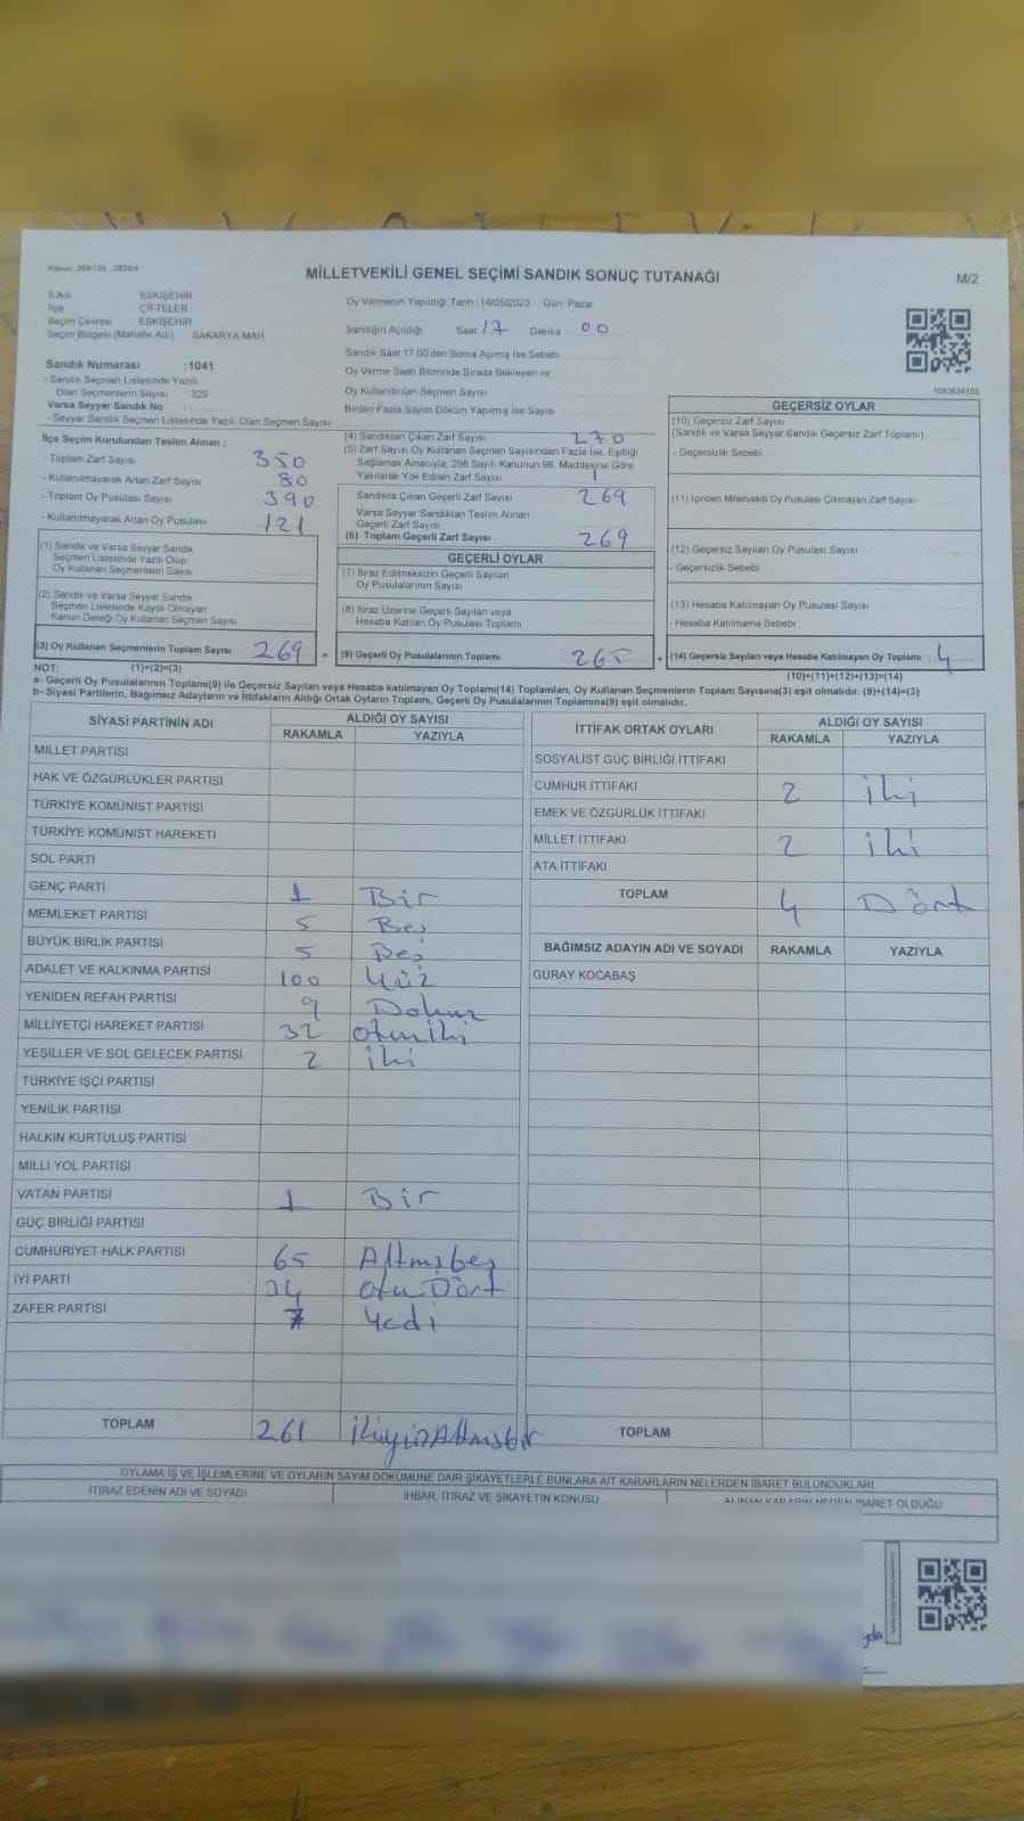 MİLLETVEKİLİ GENEL SEÇİMİ SANDIK SONUÇ TUTANAĞI
M/2
İl Adı ESKİŞEHİR
İlçe ÇİFTELER
Seçim Çevresi ESKİŞEHİR
Seçim Bölgesi (Mahalle Adı) SAKARYA MAH.
Oy Vermenin Yapıldığı Tarih : 14/05/2023 Gün: Pazar
Sandığın Açıldığı Saat 17 Dakika 00
Sandık Saat 17.00'den Sonra Açılmış İse Sebebi
Oy Verme Saati Bitiminde Sırada Bekleyen ve
Oy Kullandırılan Seçmen Sayısı
Birden Fazla Sayım Döküm Yapılmış İse Sayısı
Sandık Numarası :1041
- Sandık Seçmen Listesinde Yazılı
Olan Seçmenlerin Sayısı : 329
Varsa Seyyar Sandık No :
- Seyyar Sandık Seçmen Listesinde Yazılı Olan Seçmen Sayısı
İlçe Seçim Kurulundan Teslim Alınan :
- Toplam Zarf Sayısı 350
- Kullanılmayarak Artan Zarf Sayısı 80
- Toplam Oy Pusulası Sayısı 390
- Kullanılmayarak Artan Oy Pusulası 121
(1) Sandık ve Varsa Seyyar Sandık
Seçmen Listesinde Yazılı Olup
Oy Kullanan Seçmenlerin Sayısı
(2) Sandık ve Varsa Seyyar Sandık
Seçmen Listesinde Kayıtlı Olmayan
Kanun Gereği Oy Kullanan Seçmen Sayısı
(3) Oy Kullanan Seçmenlerin Toplam Sayısı 269 =
(4) Sandıktan Çıkan Zarf Sayısı 270
(5) Zarf Sayısı Oy Kullanan Seçmen Sayısından Fazla İse, Eşitliği
Sağlamak Amacıyla, 298 Sayılı Kanunun 98. Maddesine Göre
Yakılarak Yok Edilen Zarf Sayısı 1
Sandıkta Çıkan Geçerli Zarf Sayısı 269
Varsa Seyyar Sandıktan Teslim Alınan
Geçerli Zarf Sayısı
(6) Toplam Geçerli Zarf Sayısı 269
GEÇERLİ OYLAR
(7) İtiraz Edilmeksizin Geçerli Sayılan
Oy Pusulalarının Sayısı
(8) İtiraz Üzerine Geçerli Sayılan veya
Hesaba Katılan Oy Pusulası Toplamı
(9) Geçerli Oy Pusulalarının Toplamı 265 +
GEÇERSİZ OYLAR
(10) Geçersiz Zarf Sayısı
(Sandık ve Varsa Seyyar Sandık Geçersiz Zarf Toplamı)
- Geçersizlik Sebebi
(11) İçinden Milletvekili Oy Pusulası Çıkmayan Zarf Sayısı
(12) Geçersiz Sayılan Oy Pusulası Sayısı
- Geçersizlik Sebebi
(13) Hesaba Katılmayan Oy Pusulası Sayısı
- Hesaba Katılmama Sebebi
(14) Geçersiz Sayılan veya Hesaba Katılmayan Oy Toplamı 4
NOT: (1)+(2)=(3)
(10)+(11)+(12)+(13)=(14)
a- Geçerli Oy Pusulalarının Toplamı(9) ile Geçersiz Sayılan veya Hesaba katılmayan Oy Toplamı(14) Toplamları, Oy Kullanan Seçmenlerin Toplam Sayısına(3) eşit olmalıdır. (9)+(14)=(3)
b- Siyasi Partilerin, Bağımsız Adayların ve İttifakların Aldığı Ortak Oyların Toplamı, Geçerli Oy Pusulalarının Toplamına(9) eşit olmalıdır.
SİYASİ PARTİNİN ADI ALDIĞI OY SAYISI
RAKAMLA YAZIYLA
MİLLET PARTİSİ
HAK VE ÖZGÜRLÜKLER PARTİSİ
TÜRKİYE KOMÜNİST PARTİSİ
TÜRKİYE KOMÜNİST HAREKETİ
SOL PARTİ
GENÇ PARTİ 1 Bir
MEMLEKET PARTİSİ 5 Beş
BÜYÜK BİRLİK PARTİSİ 5 Beş
ADALET VE KALKINMA PARTİSİ 100 Yüz
YENİDEN REFAH PARTİSİ 9 Dokuz
MİLLİYETÇİ HAREKET PARTİSİ 32 otuziki
YEŞİLLER VE SOL GELECEK PARTİSİ 2 iki
TÜRKİYE İŞÇİ PARTİSİ
YENİLİK PARTİSİ
HALKIN KURTULUŞ PARTİSİ
MİLLİ YOL PARTİSİ
VATAN PARTİSİ 1 Bir
GÜÇ BİRLİĞİ PARTİSİ
CUMHURİYET HALK PARTİSİ 65 Altmışbeş
İYİ PARTİ 34 otuzDört
ZAFER PARTİSİ 7 Yedi
TOPLAM 261 ikiyüzAltmışbir
İTTİFAK ORTAK OYLARI ALDIĞI OY SAYISI
RAKAMLA YAZIYLA
SOSYALİST GÜÇ BİRLİĞİ İTTİFAKI
CUMHUR İTTİFAKI 2 iki
EMEK VE ÖZGÜRLÜK İTTİFAKI
MİLLET İTTİFAKI 2 iki
ATA İTTİFAKI
TOPLAM 4 Dört
BAĞIMSIZ ADAYIN ADI VE SOYADI RAKAMLA YAZIYLA
GÜRAY KOCABAŞ
TOPLAM
OYLAMA İŞ VE İŞLEMLERİNE VE OYLARIN SAYIM DÖKÜMÜNE DAİR ŞİKAYETLERLE BUNLARA AİT KARARLARIN NELERDEN İBARET BULUNDUKLARI
İTİRAZ EDENİN ADI VE SOYADI İHBAR, İTİRAZ VE ŞİKAYETİN KONUSU